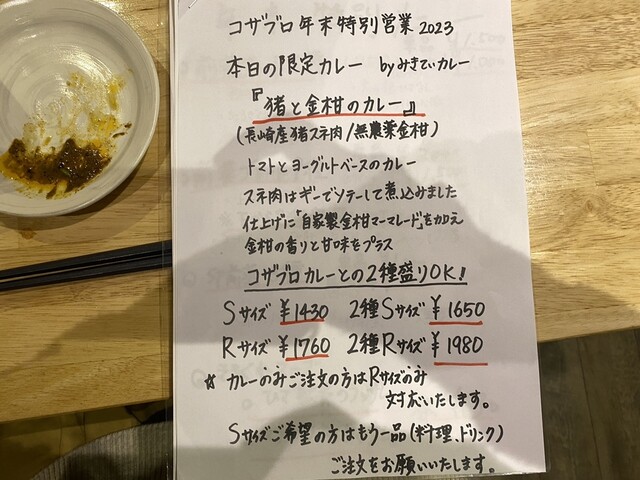 コザブロ年末特別営業2023
本日の限定カレー byみきてぃカレー
『猪と金柑のカレー』
(長崎産猪スネ肉/無農薬金柑)
トマトとヨーグルトベースのカレー
スネ肉はギーでソテーして煮込みました
仕上げに「自家製金柑マーマレード」を加え
金柑の香りと甘味をプラス
コザブロカレーとの2種盛りOK!
Sサイズ ¥1430 2種Sサイズ ¥1650
Rサイズ ¥1760 2種Rサイズ ¥1980
☆ カレーのみご注文の方はRサイズのみ
対応いたします。
Sサイズご希望の方はもう一品(料理、ドリンク)
ご注文をお願いいたします。